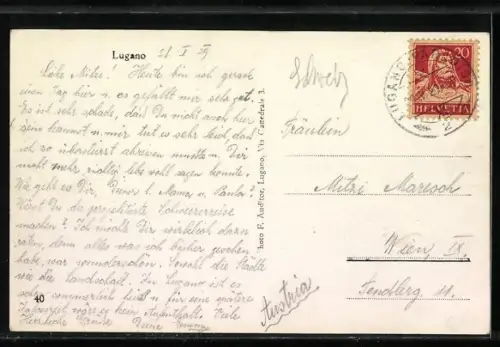 Lugano 21 I 29
Liebe Mitzi! Heute bin ich gerade
einen Tag hier u. es gefällt mir sehr gut.
Es ist sehr schade, daß Du nicht auch hier
sein kannst u. mir tut es sehr leid, daß
ich so überstürzt abreisen mußte u. Dir
nicht mehr richtig lebe wohl sagen konnte.
Wie geht es Dir, Deiner l. Mama u. Paula?
Wirst Du die projektierte Schweizerreise
machen? Ich möchte Dir wirklich dazu
raten, denn alles was ich bisher gesehen
habe, war wunderschön. Sowohl die Städte
wie die Landschaft. In Lugano ist es
sehr sommerlich u. für eine spätere
es kein Aufenthalt. Viele
Herzliche Deine
40
Photo F. Auditor, Lugano, Via Cattedrale 3.
Schweiz
20
HELVETIA
LUGANO
Fräulein
Mitzi Marisch
Wien, IX.
Sendlberg. 11.
Austria